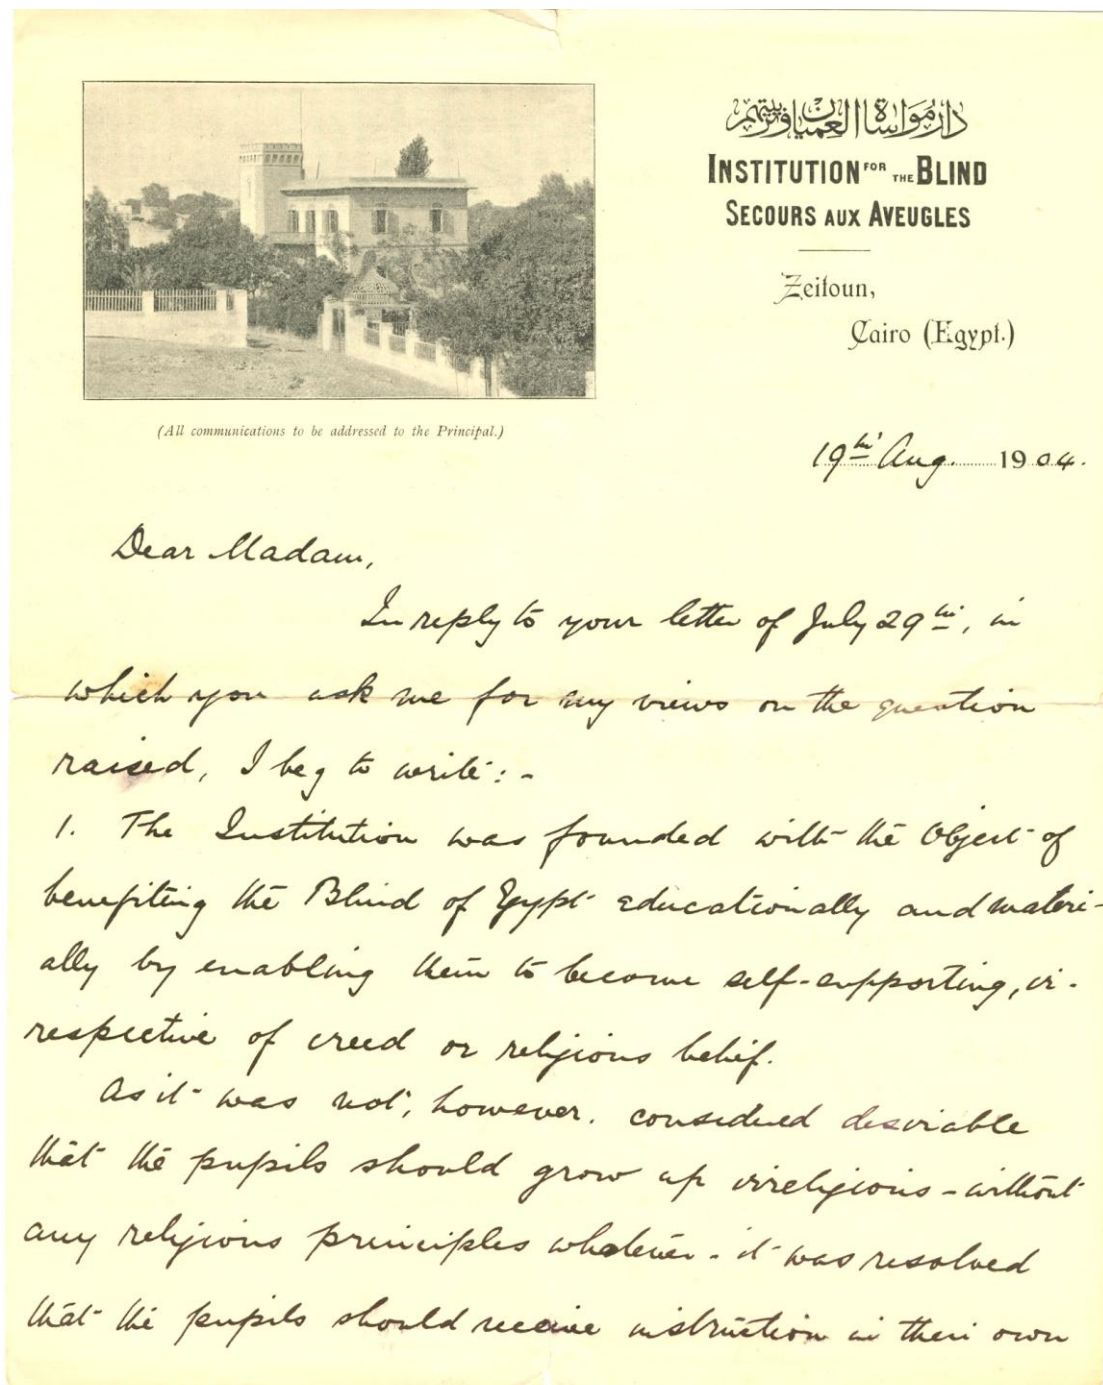 دار مواساة العميان وتربيتهم
INSTITUTION FOR THE BLIND
SECOURS AUX AVEUGLES
Zeitoun,
Cairo (Egypt.)
(All communications to be addressed to the Principal.)
19th Aug. 1904.
Dear Madam,
In reply to your letter of July 29th, in
which you ask me for my views on the question
raised, I beg to write:-
1. The Institution was founded with the Object of
benefiting the Blind of Egypt educationally and materi-
ally by enabling them to become self-supporting, ir-
respective of creed or religious belief.
As it was not, however, considered desirable
that the pupils should grow up irreligious - without
any religious principles whatever - it was resolved
that the pupils should receive instruction in their own